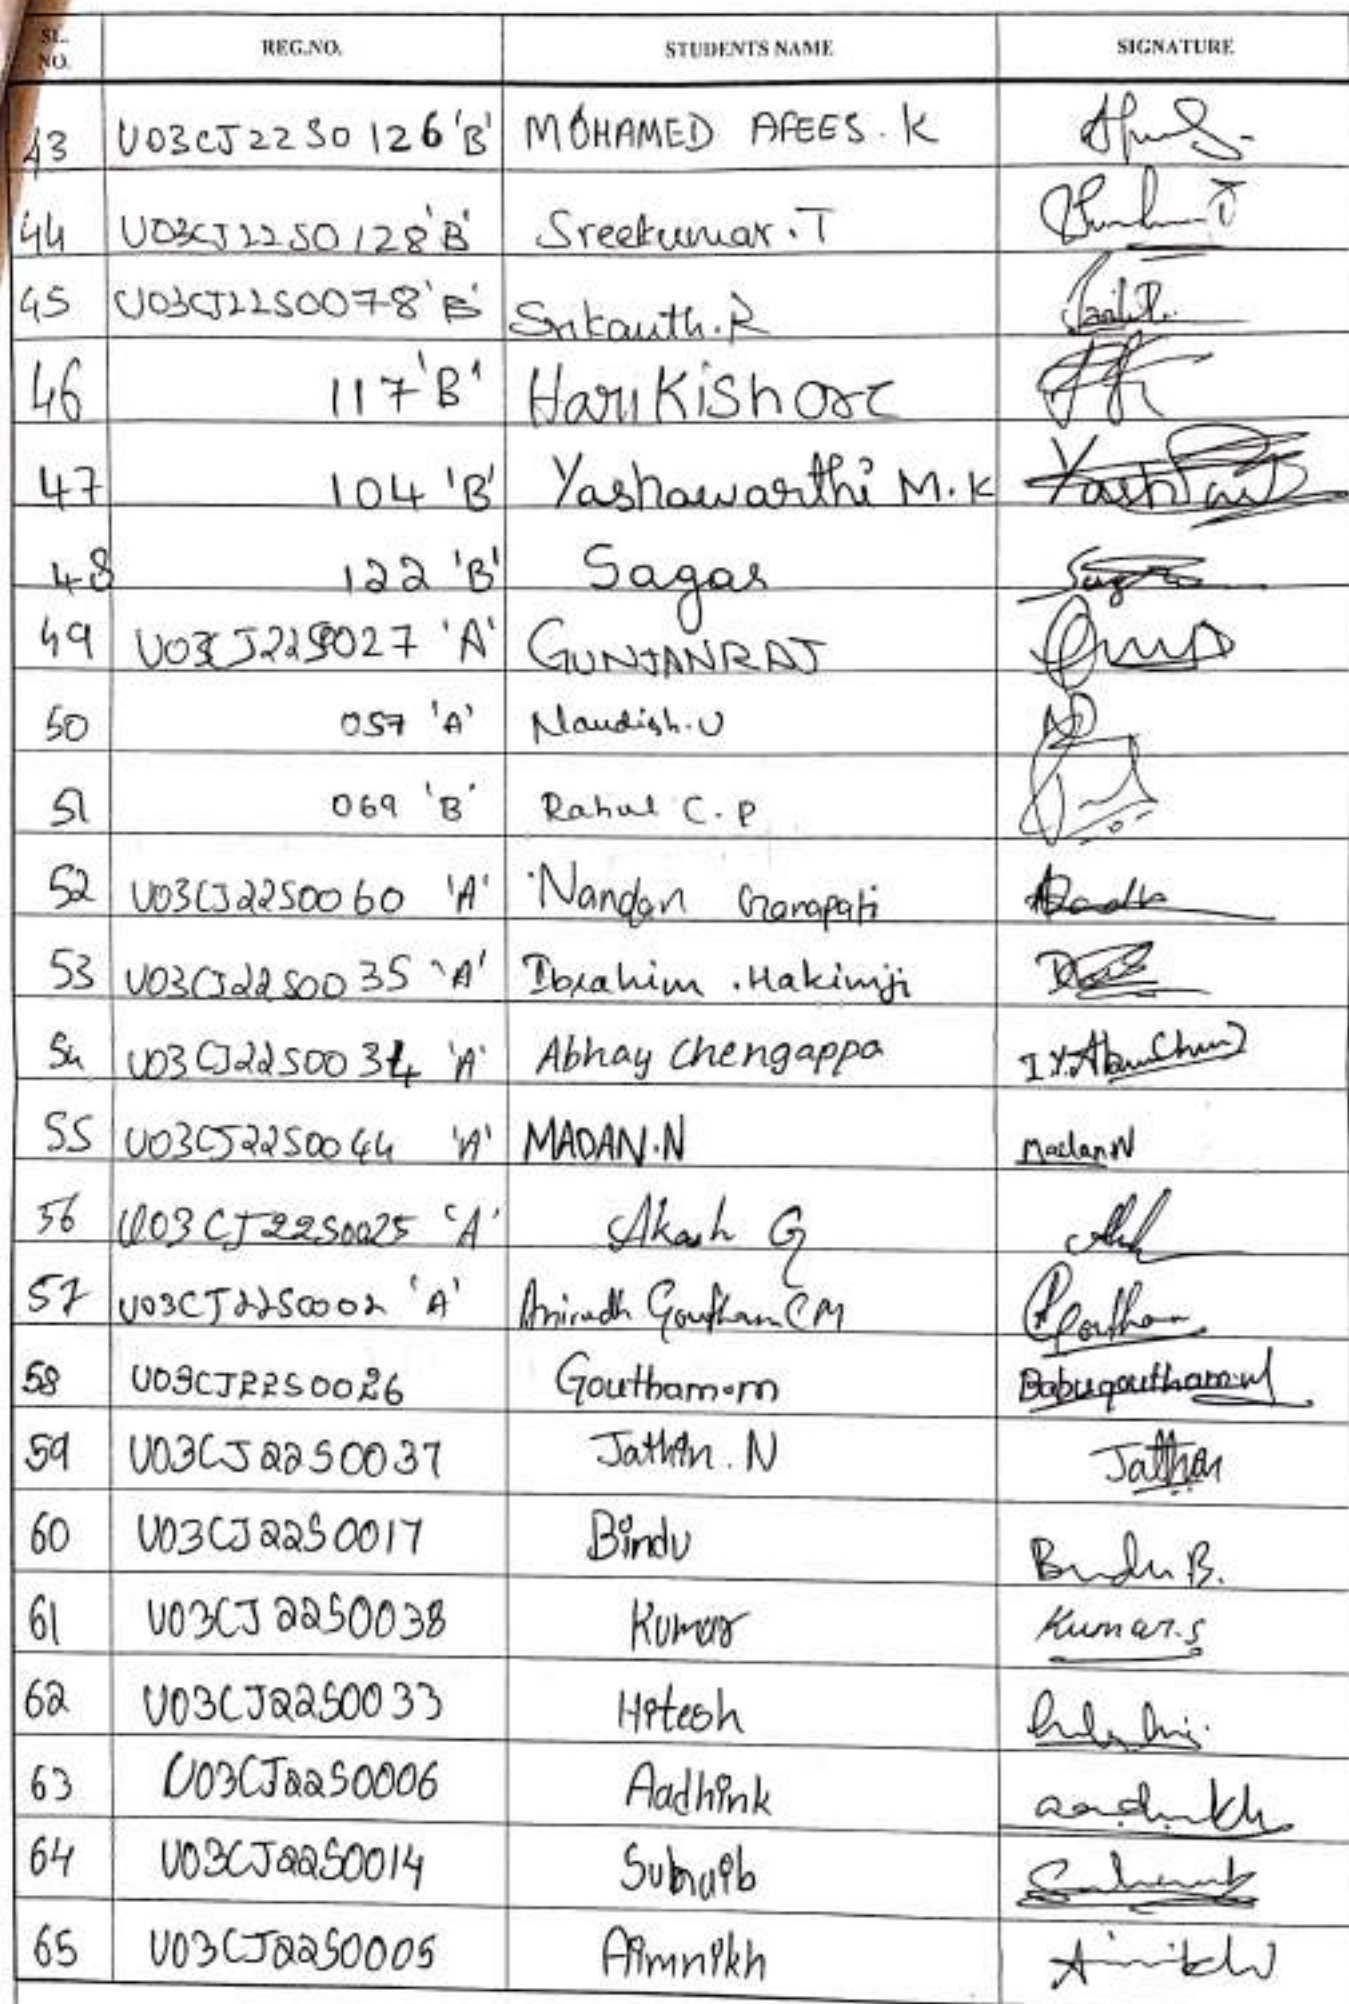 SL. NO. REG.NO. STUDENTS NAME SIGNATURE
43 U03CJ22S0126 'B' MOHAMED AFEES. K
44 U03CJ22S0128 'B' Sreekumar. T
45 U03CJ22S0078 'B' Srikanth. R
46 117 'B' Hari Kishore
47 104 'B' Yashawarthi M.K
48 122 'B' Sagar
49 U03CJ22S027 'A' GUNJANRAJ
50 057 'A' Nandish. U
51 069 'B' Rahul C. P
52 U03CJ22S0060 'A' Nandan Ganapati
53 U03CJ22S0035 'A' Ibrahim . Hakimji
54 U03CJ22S0034 'A' Abhay Chengappa
55 U03CJ22S0044 'A' MADAN. N Madan N
56 U03CJ22S0025 'A' Akash G
57 U03CJ22S0002 'A' Anirudh Goutham CM Goutham
58 U03CJ22S0026 Goutham.m Babugoutham.m
59 U03CJ22S0037 Jathin. N Jathin
60 U03CJ22S0017 Bindu Bindu B.
61 U03CJ22S0038 Kumar Kumar.s
62 U03CJ22S0033 Hitesh
63 U03CJ22S0006 Aadhink
64 U03CJ22S0014
65 U03CJ22S0005 Aimnikh